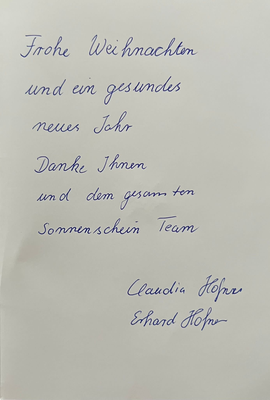 Frohe Weihnachten
und ein gesundes
neues Jahr
Danke Ihnen
und dem gesamten
Sonnenschein Team
Claudia Hofner
Erhard Hofner